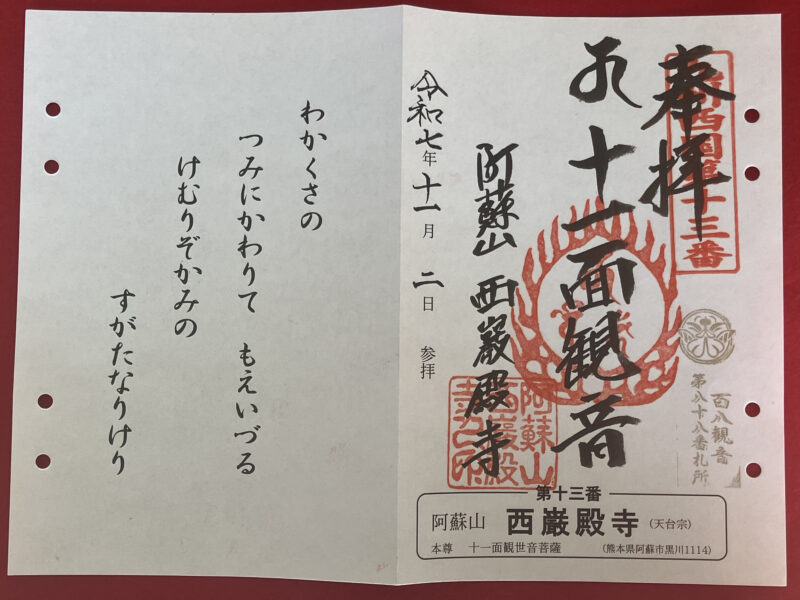 奉拝
十一面観音
阿蘇山 西巌殿寺
令和七年十一月二日 参拝
百八観音
第八十八番札所
阿蘇山
西巌殿
寺之印
第十三番
阿蘇山 西巌殿寺 (天台宗)
本尊 十一面観世音菩薩 (熊本県阿蘇市黒川1114)
わかくさの
つみにかわりて もえいづる
けむりぞかみの
すがたなりけり